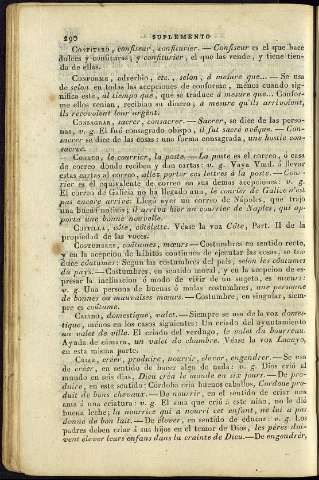 290 SUPLEMENTO
CONFITERO, confiseur, confiturier. — Confiseur es el que hace
dulces y confituras; y confiturier, el que las vende, y tiene tien-
da de ellas.
CONFORME, adverbio, etc., selon, à mesure que... — Se usa
de selon en todas las acepciones de conforme, ménos cuando sig-
nifica este, al tiempo que, que se traduce à mesure que... Confor-
me ellos venian, recibian su dinero, à mesure qu'ils arrivoient,
ils recevoient leur argent.
CONSAGRAR, sacrer, consacrer. — Sacrer, se dice de las perso-
nas, v. g. El fué consagrado obispo, il fut sacré évêque. — Con-
sacrer se dice de las cosas: una forma consagrada, une hostie con-
sacrée.
CORREO, le courrier, la poste. — La poste es el correo, ó casa
de correo donde reciben y dan cartas: v. g. Vaya Vmd. á llevar
estas cartas al correo, allez porter ces lettres à la poste. — Cour-
rier es el equivalente de correo en sus demas acepciones: v. g.
El correo de Galicia no ha llegado aun, le courier de Galice n'est
pas encore arrivé: Llegó ayer un correo de Nápoles, que trajo
una buena noticia, il arriva hier un courrier de Naples, qui ap-
porta une bonne nouvelle.
COSTILLA, côte, côtelette. Véase la voz Côte, Part. II de la
propiedad de las voces.
COSTUMBRE, coutumes, mœurs. — Costumbres en sentido recto,
y en la acepcion de hábitos contínuos de ejecutar las cosas, se tra-
duce coutumes: Segun las costumbres del pais, selon les coutumes
du pays. — Costumbres, en sentido moral, y en la acepcion de es-
presar la inclinacion ó modo de vivir de un sugeto, es mœurs:
v. g. Una persona de buenas ó malas costumbres, une personne
de bonnes ou mauvaises mœurs. — Costumbre, en singular, siem-
pre es coutume.
CRIADO, domestique, valet. — Siempre se usa de la voz domes-
tique, ménos en los casos siguientes: Un criado del ayuntamiento
un valet de ville. El criado del verdugo, le valet du bourreau.
Ayuda de cámara, un valet de chambre. Véase la voz Lacayo,
en esta misma parte.
CRIAR, créer, produire, nourrir, élever, engendrer. — Se usa
de créer, en sentido de hacer algo de nada: v. g. Dios crió al
mundo en seis dias, Dieu créa le monde en six jours. — De pro-
duire, en este sentido: Córdoba cria buenos caballos, Cordoue pro-
duit de bons chevaux. — De nourrir, en el sentido de criar una
ama á una criatura: v. g. El ama que crió á este niño, no le dió
buena leche; la nourrice qui a nourri cet enfant, ne lui a pas
donné de bon lait. — De élever, en sentido de educar: v. g. Los
padres deben criar á sus hijos en el temor de Dios, les pères doi-
vent élever leurs enfans dans la crainte de Dieu. — De engendrer,